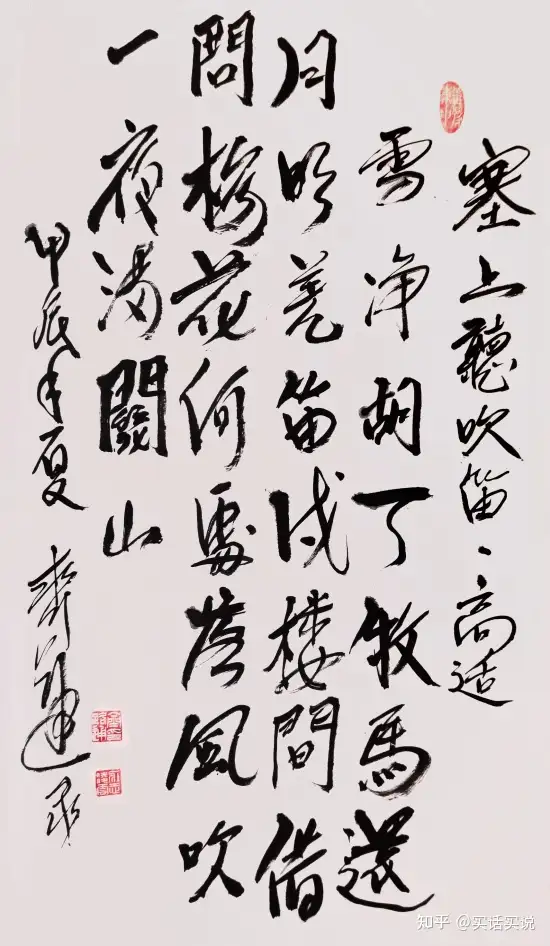 塞上聽吹笛、、高适
雪净胡天牧馬還
月明羌笛戍樓間借
問梅花何處落風吹
一夜满關山
甲辰年夏 齊建
知乎 @实话实说